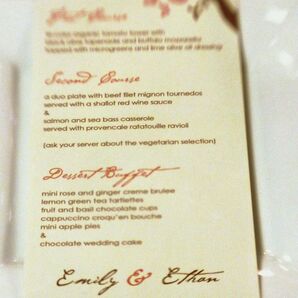 First Course
organic tomato tower with
black olive tapenade and buffalo mozzarella
topped with microgreens and lime olive oil dressing
Second Course
a duo plate with beef filet mignon tournedos
served with a shallot red wine sauce
&
salmon and sea bass casserole
served with provencale ratatouille ravioli
(ask your server about the vegetarian selection)
Dessert Buffet
mini rose and ginger creme brulee
lemon green tea tartlettes
fruit and basil chocolate cups
cappuccino croqu'en bouche
mini apple pies
&
chocolate wedding cake
Emily & Ethan